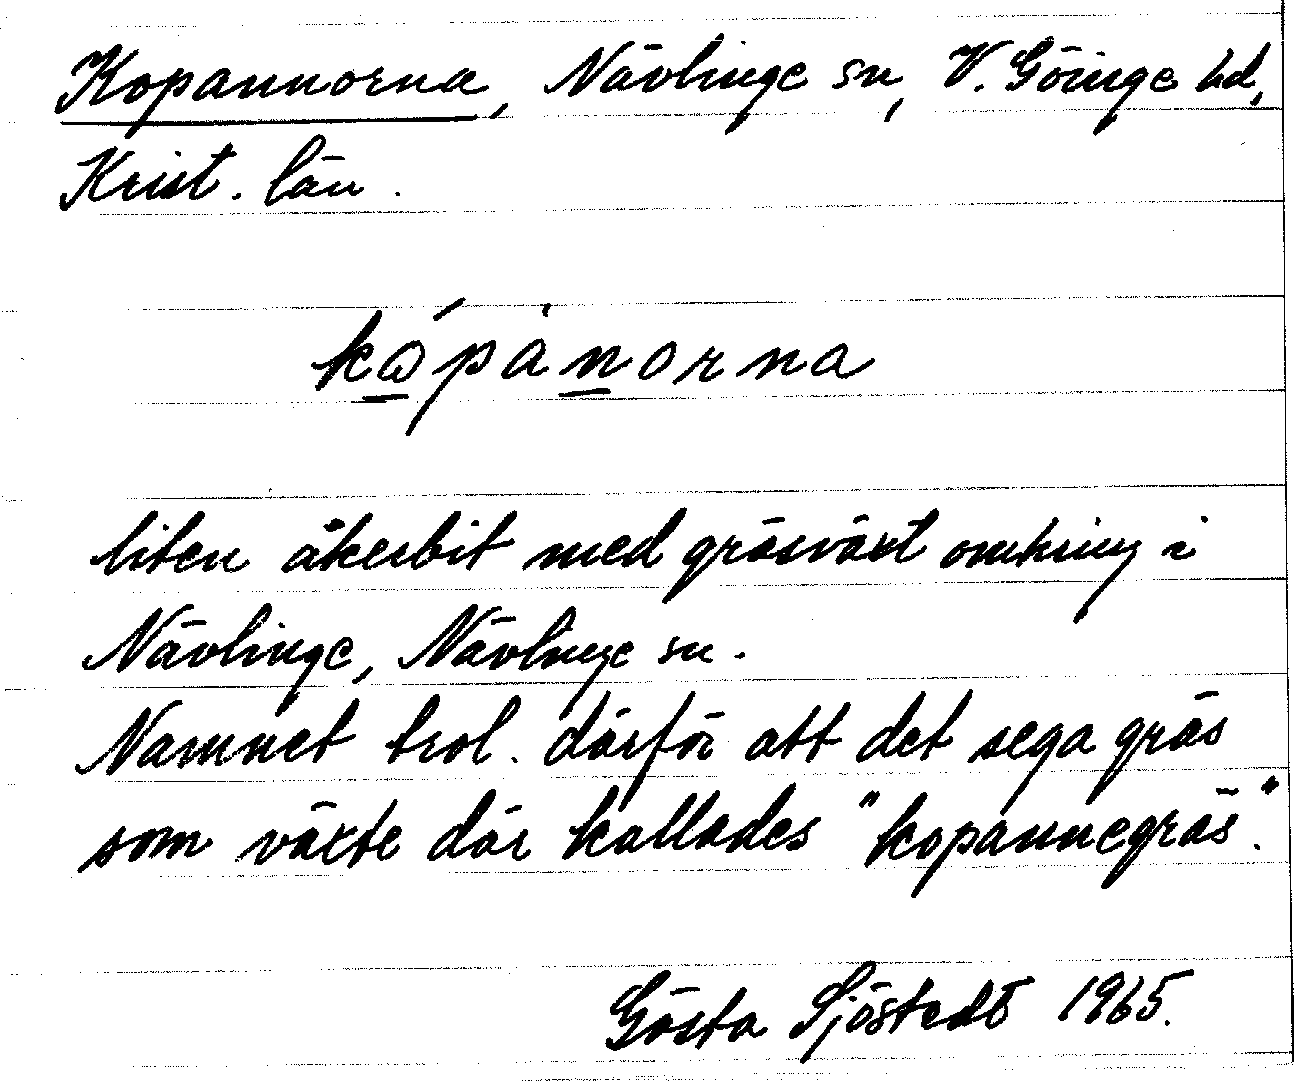 Kopannorna, Nävlinge sn, V. Göinge hd,
Krist. län.
kǫ́pànorna
liten åkerbit med gräsväxt omkring i
Nävlinge, Nävlinge sn.
Namnet trol. därför att det sega gräs
som växte där kallades "kopannegräs".
Gösta Sjöstedt 1965.